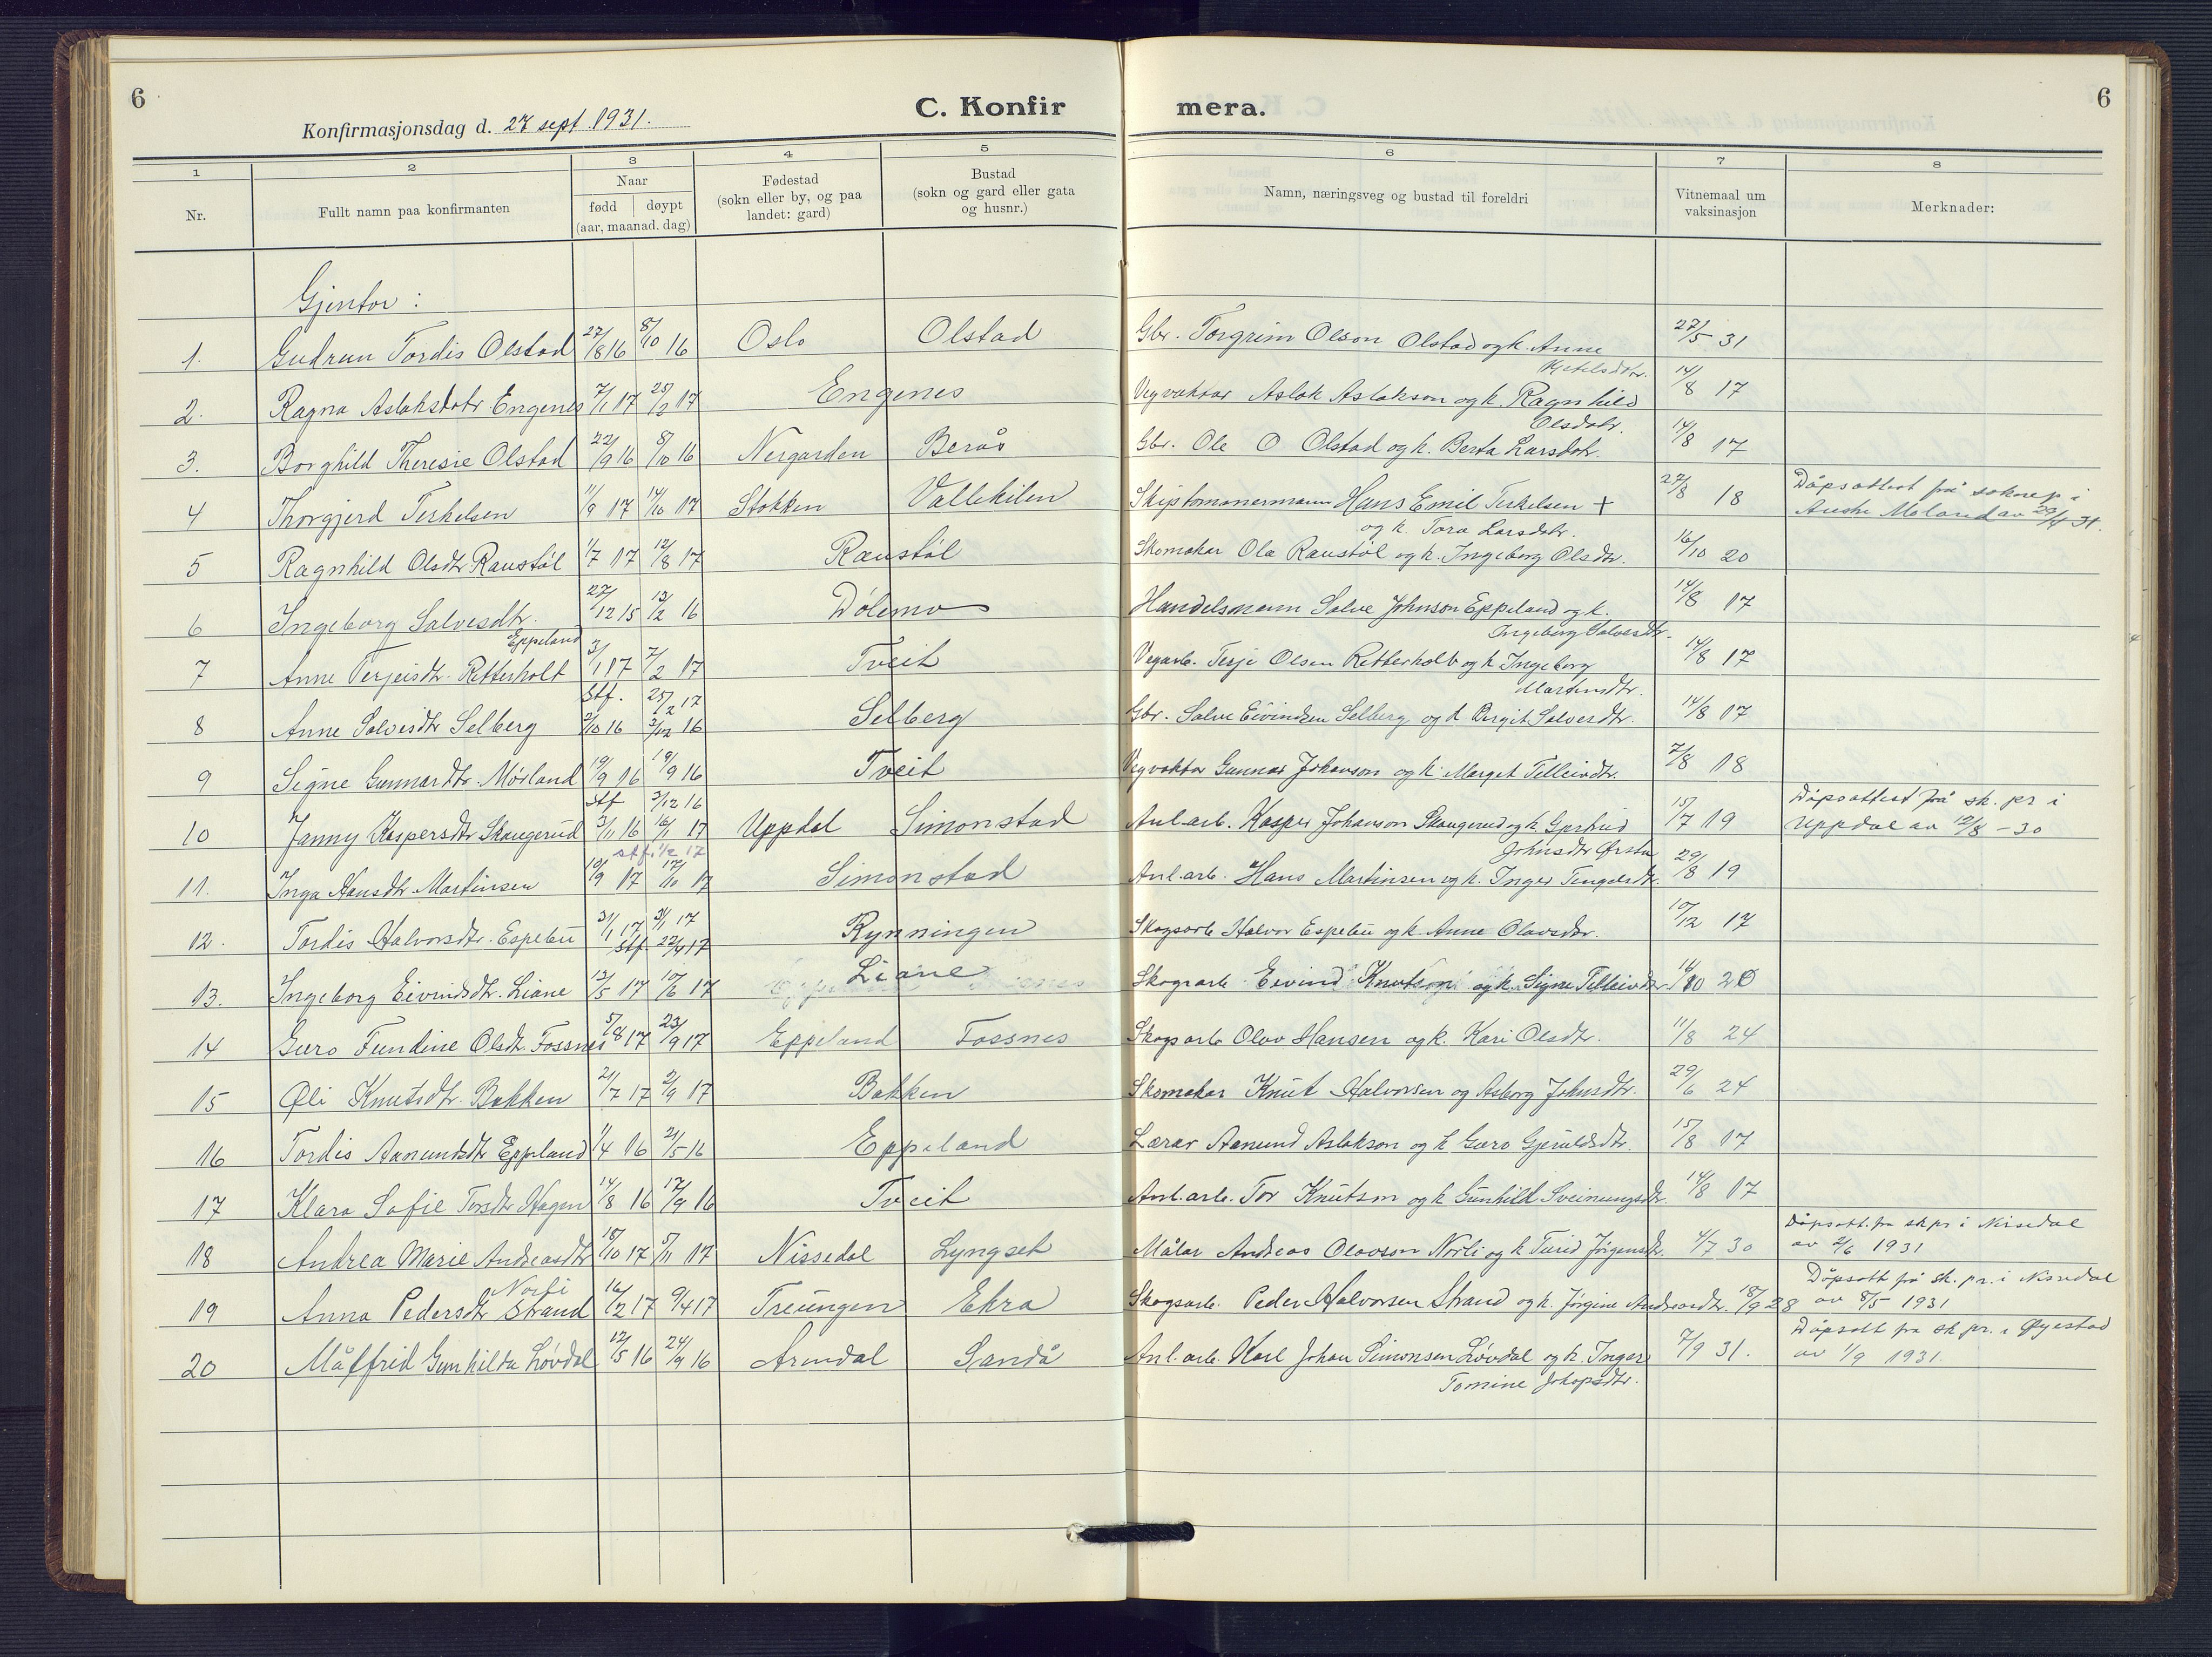 6
Konfirmasjonsdag d. 27 sept. 1931.
C. Konfir
mera.
6
1 2 3 4 5 6 7 8
Nr.
Fullt namn paa konfirmanten
Naar
fødd | døypt
(aar, maanad. dag)
Fødestad
(sokn eller by, og paa
landet: gard)
Bustad
(sokn og gard eller gata
og husnr.)
Namn, næringsveg og bustad til foreldri
Vitnemaal um
vaksinasjon
Merknader:
Gjentor :
1. Gudrun Tordis Olstad 27/8 16 8/10 16 Oslo Olstad Gbr. Torgrim Olson Olstad og k. Anne 27/5 31
Kjetelsdtr.
2. Ragna Aslaksdotr Engenes 7/1 17 25/2 17 Engenes Vegvaktar Aslak Aslakson og k. Ragnhild 14/8 17
Olsdotr.
3. Borghild Theresie Olstad 22/9 16 8/10 16 Nergarden Berås Gbr. Ole O Olstad og k. Berta Larsdotr. 14/8 17
4 Thorgjerd Terkelsen 11/9 17 14/10 17 Stokken Vallekilen Skipstømmermann Hans Emil Terkelsen + 27/8 18 Dåpsattest frå soknep i
og k. Tora Larsdotr. Austre Moland av 29/4 31.
5 Ragnhild Olsdtr Raustøl 1/7 17 12/8 17 Raustøl Skomakar Ola Raustøl og k. Ingeborg Olsdtr. 16/10 20
6 Ingeborg Salvesdtr. 27/12 15 13/2 16 Dølemo Handelsmann Salve Johnson Eppeland og k. 14/8 17
Eppeland Ingeborg Salvesdtr.
7 Anne Terjeisdtr. Retterholt 3/1 17 7/2 17 Tveit Vegarb. Terje Olsen Retterholt og k Ingeborg 14/8 17
Stf. 25/2 17 Martinsdtr.
8 Anne Salvesdtr Selberg 3/10 16 3/12 16 Selberg Gbr. Salve Eivindsen Selberg og k Birgit Salvesdtr. 14/8 17
9 Signe Gunnardtr. Mørland 19/9 16 19/9 16 Tveit Vegvaktar Gunnar Johanson og k. Marget Telleivdtr. 7/8 18
Stf 3/12 16
10 Janny Kaspersdtr Skaugerud 3/11 16 16/1 17 Uppdal Simonstad Anl.arb. Kasper Johanson Skaugerud og k. Gjertrud 15/7 19 Dåpsattest frå sk. pr i
stf. 11/2 17 Johnsdtr Uppdal av 12/8 - 30
11. Inga Hansdtr Martinsen 19/9 17 17/10 17 Simonstad Anl.arb. Hans Martinsen og k. Inger 29/8 19
12. Tordis Halvorsdtr. Espebu 31/1 17 31/1 17 Rynningen Skogsarb Halvor Espebu og k. Anne Olavsdtr. 10/12 17
stf. 22/4 17
13. Ingeborg Eivindsdtr. Liane 13/5 17 10/6 17 Liane Skogsarb. Eivind Knutson og k. Signe Telleivdtr. 16/10 20
14 Guro Fundine Olsdtr. Fossnes 5/8 17 23/9 17 Eppeland Fossnes Skogsarb Olav Hansen og k. Kari Olsdtr. 11/8 24
15 Øli Knutsdtr. Bakken 21/7 17 2/9 17 Bakken Skomakar Knut Halvorsen og Asborg Johnsdtr. 29/6 24
16 Tordis Aanundsdtr Eppeland 1/4 16 21/5 16 Eppeland Lærar Aanund Aslakson og k Guro Gjeruldsdtr. 15/8 17
17 Klara Sofie Torsdtr Hagen 14/8 16 17/9 16 Tveit Anl.arb. Tor Knutson og k Gunhild Sveinungsdtr. 14/8 17
18 Andrea Marie Andreasdtr 18/10 17 5/11 17 Nissedal Lyngset Målar Andreas Olavson Norli og k Turid Jørgensdtr. 4/7 30 Dåpsatt. fra sk pr i Nissedal
Norli av 2/6 1931
19 Anna Pedersdtr Strand 16/2 17 9/4 17 Treungen Ekra Skogsarb. Peder Halvorsen Strand og k. Jørgine Andreasdtr. 18/9 28 Dåpsatt frå sk. pr. i Nissedal
av 8/5 1931
20 Målfrid Gunhilda Løvdal 12/5 16 24/9 16 Arendal Sandå Anl.arb. Karl Johan Simonsen Løvdal og k. Inger 7/9 31. Dåpsatt fra sk pr. i Øyestad
Tomine av 1/9 1931.